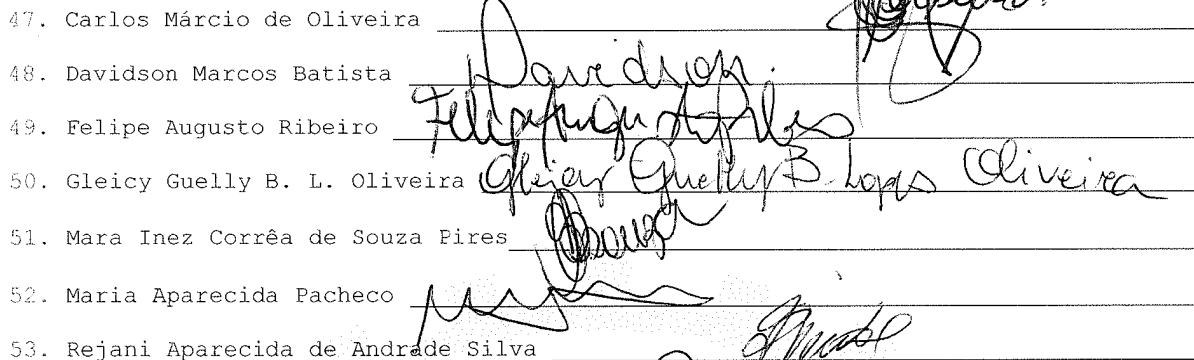 47. Carlos Márcio de Oliveira
48. Davidson Marcos Batista Davidson.
49. Felipe Augusto Ribeiro
50. Gleicy Guelly B. L. Oliveira Gleicy Guelly B. Lopes Oliveira
51. Mara Inez Corrêa de Souza Pires
52. Maria Aparecida Pacheco
53. Rejani Aparecida de Andrade Silva